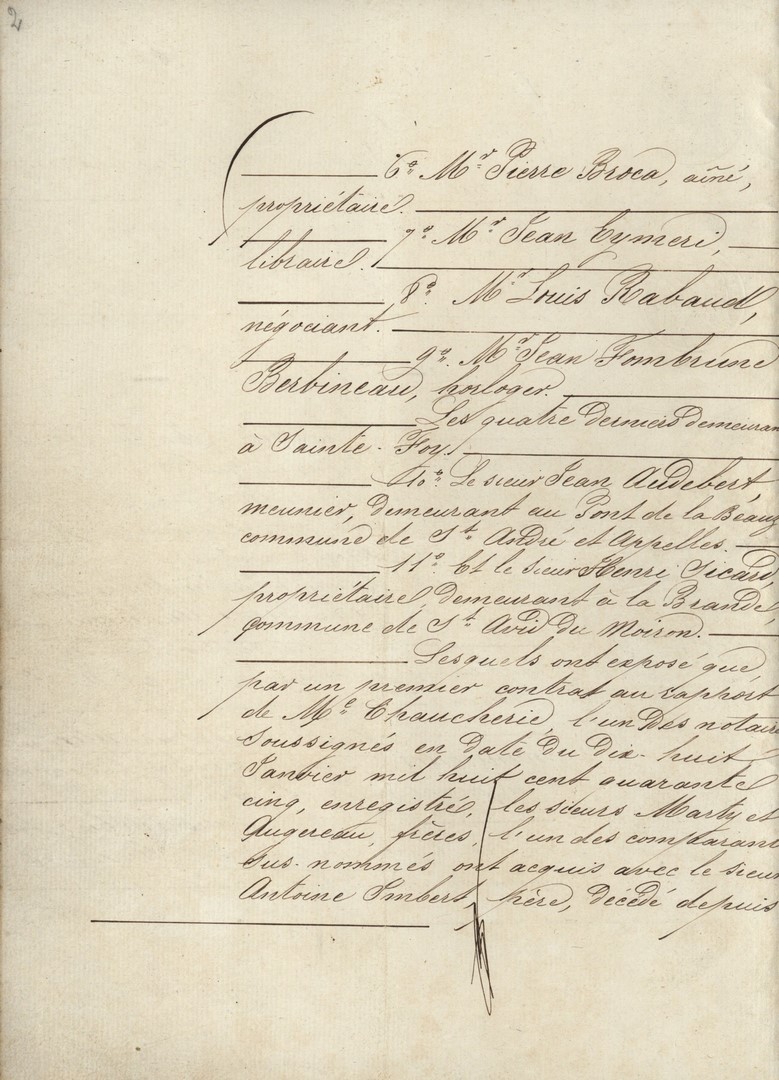 2
6o. Mr. Pierre Broca, aîné,
propriétaire.
7o. Mr. Jean Eymeri,
libraire.
8o. Mr. Louis Rabaud,
négociant.
9o. Mr. Jean Fombrune
Berbineau, horloger.
Les quatre derniers demeuran
à Sainte-Foy.
10o. Le sieur Jean Audebert,
meunier, demeurant au Pont de la Beauz
commune de St. André et Appelles.
11o. Et le sieur Henri Sicard,
propriétaire, demeurant à la Brande,
commune de St. Avid du Moiron.
Lesquels ont exposé que,
par un premier contrat au rapport
de Me. Chaucherie, l'un des notaire
soussignés en date du dix-huit
Janvier mil huit cent quarante
cinq, enregistré, les sieurs Marty et
Augereau, frères, l'un des comparant
sus-nommés ont acquis avec le sieur
Antoine Imbert, père, décédé depuis